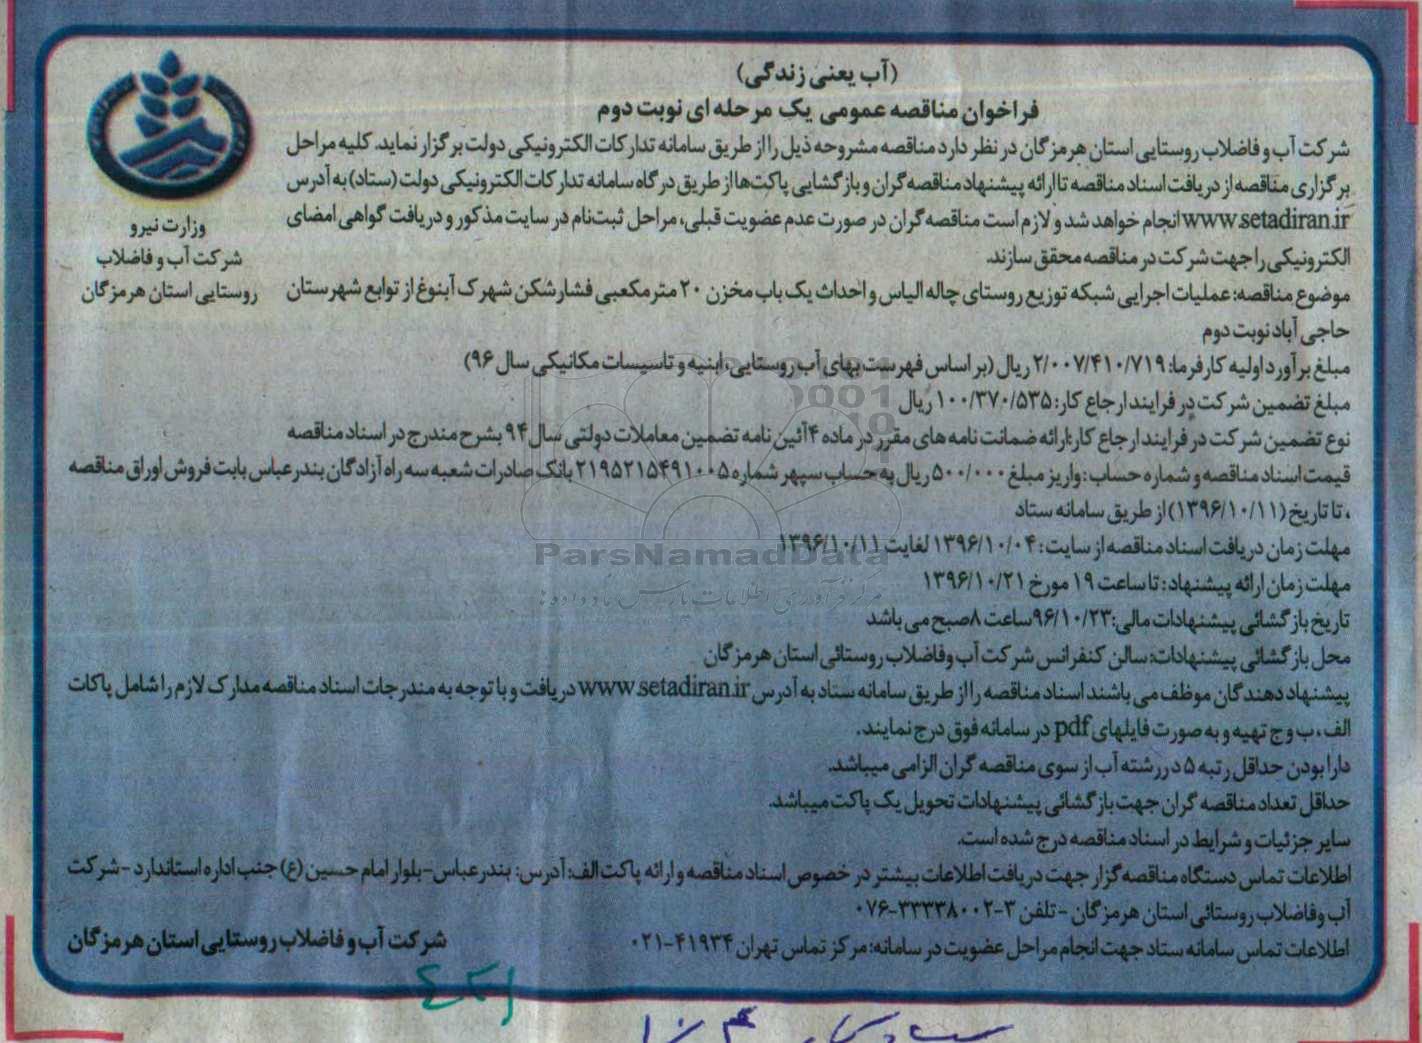 (آب یعنی زندگی)
فراخوان مناقصه عمومی یک مرحله ای نوبت دوم
شرکت آب و فاضلاب روستایی استان هرمزگان در نظر دارد مناقصه مشروحه ذیل را از طریق سامانه تدارکات الکترونیکی دولت برگزار نماید. کلیه مراحل
برگزاری مناقصه از دریافت اسناد مناقصه تا ارائه پیشنهاد مناقصه گران و بازگشایی پاکت‌ها از طریق درگاه سامانه تدارکات الکترونیکی دولت (ستاد) به آدرس
www.setadiran.ir انجام خواهد شد و لازم است مناقصه گران در صورت عدم عضویت قبلی، مراحل ثبت‌نام در سایت مذکور و دریافت گواهی امضای
الکترونیکی را جهت شرکت در مناقصه محقق سازند.
موضوع مناقصه: عملیات اجرایی شبکه توزیع روستای چاله الیاس و احداث یک باب مخزن ۲۰ مترمکعبی فشارشکن شهرک آبنوغ از توابع شهرستان
حاجی آباد نوبت دوم
مبلغ برآورد اولیه کارفرما: ۲/۰۰۷/۴۱۰/۷۱۹ ریال (بر اساس فهرست بهای آب روستایی، ابنیه و تاسیسات مکانیکی سال ۹۶)
مبلغ تضمین شرکت در فرایند ارجاع کار: ۱۰۰/۳۷۰/۵۳۵ ریال
نوع تضمین شرکت در فرایند ارجاع کار: ارائه ضمانت نامه های مقرر در ماده ۴ آئین نامه تضمین معاملات دولتی سال ۹۴ بشرح مندرج در اسناد مناقصه
قیمت اسناد مناقصه و شماره حساب: واریز مبلغ ۵۰۰/۰۰۰ ریال به حساب سپهر شماره ۲۱۹۵۲۱۵۴۹۱۰۰۵ بانک صادرات شعبه سه راه آزادگان بندرعباس بابت فروش اوراق مناقصه
، تا تاریخ (۱۳۹۶/۱۰/۱۱) از طریق سامانه ستاد
مهلت زمان دریافت اسناد مناقصه از سایت: ۱۳۹۶/۱۰/۰۴ لغایت ۱۳۹۶/۱۰/۱۱
مهلت زمان ارائه پیشنهاد: تا ساعت ۱۹ مورخ ۱۳۹۶/۱۰/۲۱
تاریخ بازگشائی پیشنهادات مالی: ۹۶/۱۰/۲۳ ساعت ۸ صبح می باشد
محل بازگشائی پیشنهادات: سالن کنفرانس شرکت آب وفاضلاب روستائی استان هرمزگان
پیشنهاد دهندگان موظف می باشند اسناد مناقصه را از طریق سامانه ستاد به آدرس www.setadiran.ir دریافت و با توجه به مندرجات اسناد مناقصه مدارک لازم را شامل پاکات
الف، ب و ج تهیه و به صورت فایلهای pdf در سامانه فوق درج نمایند.
دارا بودن حداقل رتبه ۵ در رشته آب از سوی مناقصه گران الزامی میباشد.
حداقل تعداد مناقصه گران جهت بازگشائی پیشنهادات تحویل یک پاکت میباشد.
سایر جزئیات و شرایط در اسناد مناقصه درج شده است.
اطلاعات تماس دستگاه مناقصه گزار جهت دریافت اطلاعات بیشتر در خصوص اسناد مناقصه و ارائه پاکت الف: آدرس: بندرعباس-بلوار امام حسین (ع) جنب اداره استاندارد -شرکت
آب وفاضلاب روستائی استان هرمزگان - تلفن ۳-۳۳۳۳۸۰۰۲-۰۷۶
اطلاعات تماس سامانه ستاد جهت انجام مراحل عضویت در سامانه: مرکز تماس تهران ۴۱۹۳۴-۰۲۱
شرکت آب و فاضلاب روستایی استان هرمزگان
وزارت نیرو
شرکت آب و فاضلاب
روستایی استان هرمزگان
ParsNamadData